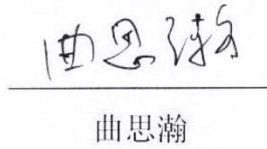 曲思瀚
曲思瀚